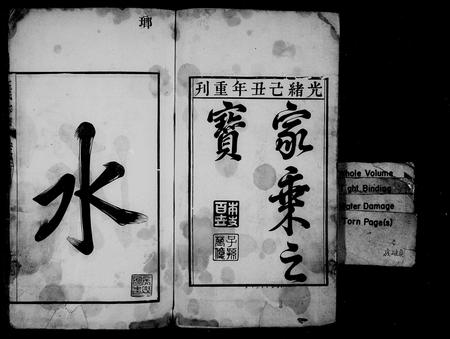 光緒己丑年重刊
家乘之
寶
水
瑯
Whole Volume
Tight Binding
Water Damage
Torn Page(s)